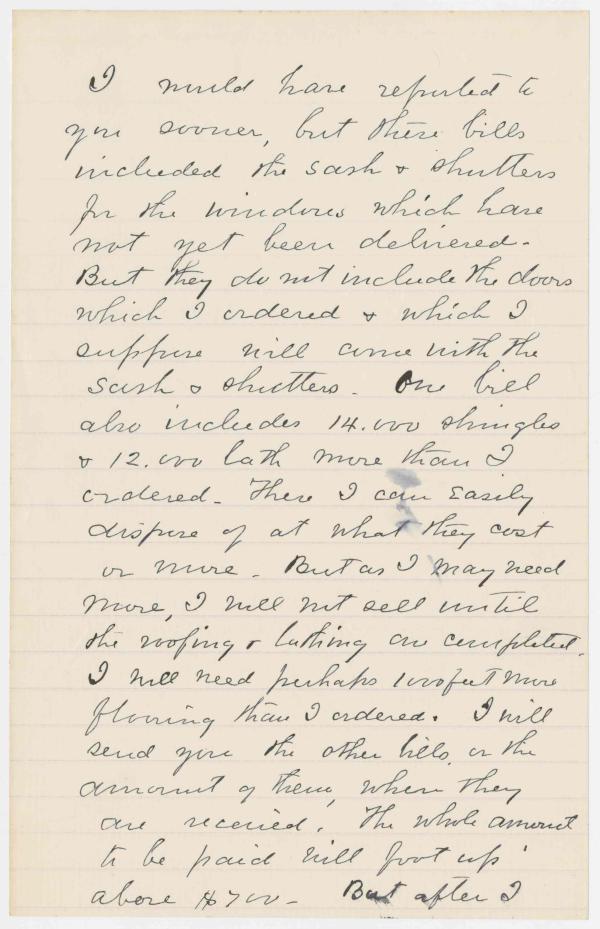 I would have reported to
you sooner, but these bills
included the sash & shutters
for the windows which have
not yet been delivered.
But they do not include the doors
which I ordered & which I
suppose will come with the
sash & shutters. One bill
also includes 14.000 shingles
& 12.000 lath more than I
ordered. These I can easily
dispose of at what they cost
or more. But as I may need
more, I will not sell until
the roofing & lathing are completed.
I will need perhaps 1000 feet more
flooring than I ordered. I will
send you the other bills, or the
amount of them, when they
are received. The whole amount
to be paid will foot up
above $700- But after I